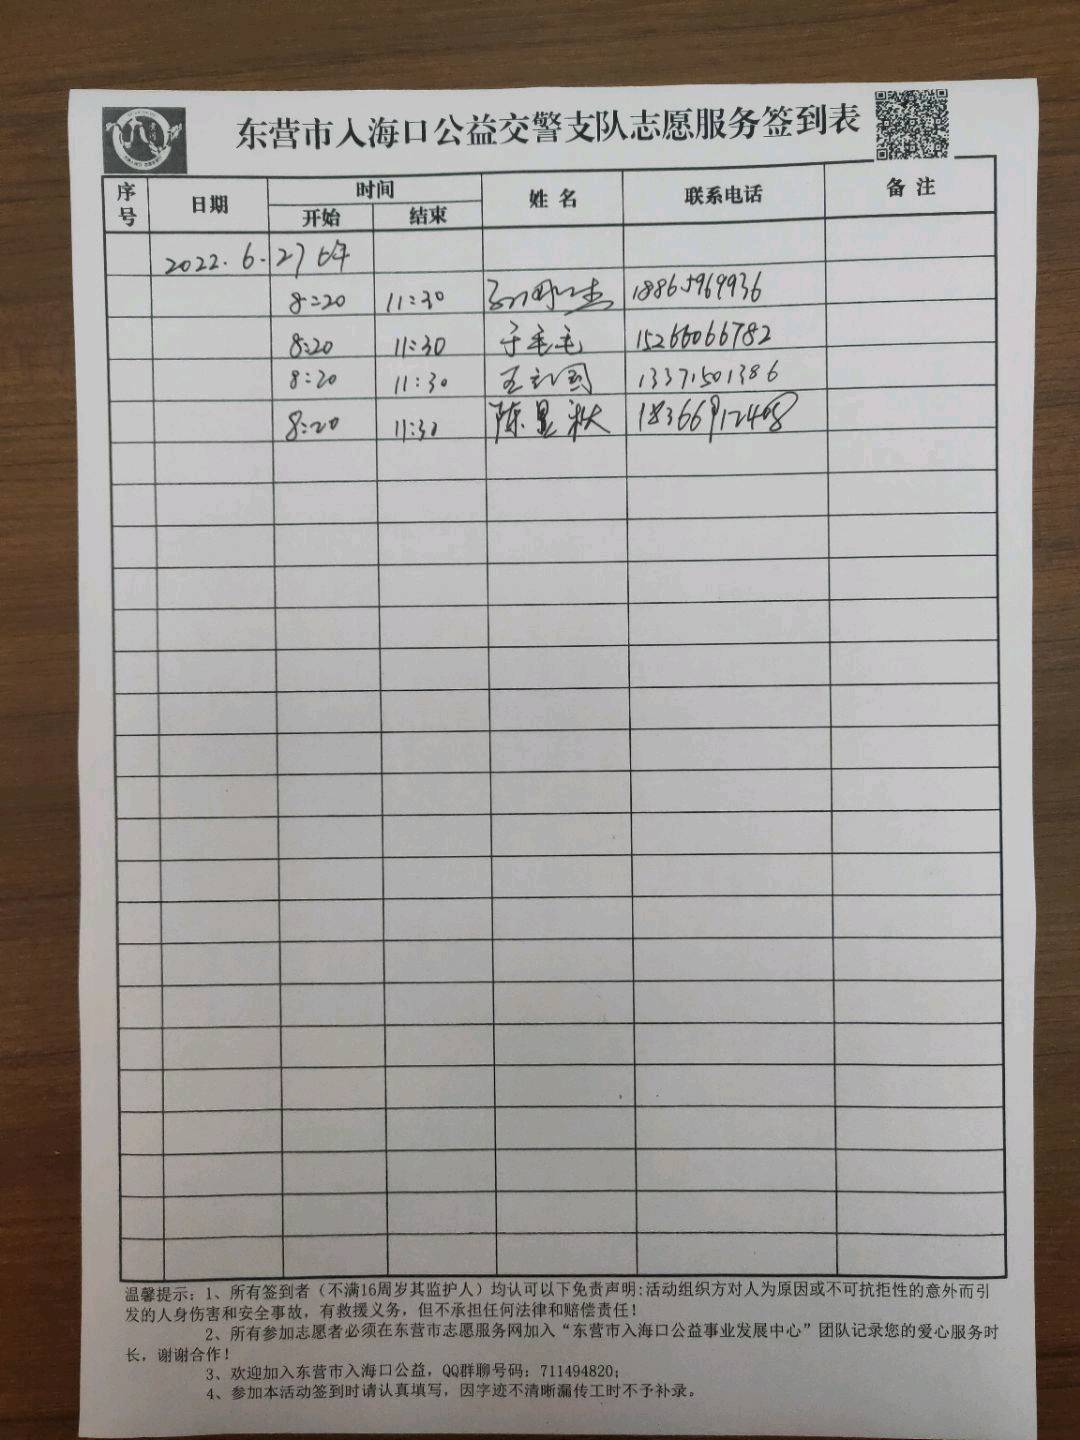 东营市入海口公益交警支队志愿服务签到表
序号 日期 时间 姓名 联系电话 备注
开始 结束
2022.6.27 上午
8:20 11:30 18865969936
8:20 11:30 于毛毛 15266066782
8:20 11:30 王 国 13371501386
8:20 11:30 陈显秋 18366912408
温馨提示:1、所有签到者(不满16周岁其监护人)均认可以下免责声明:活动组织方对人为原因或不可抗拒性的意外而引
发的人身伤害和安全事故,有救援义务,但不承担任何法律和赔偿责任!
2、所有参加志愿者必须在东营市志愿服务网加入“东营市入海口公益事业发展中心”团队记录您的爱心服务时
长,谢谢合作!
3、欢迎加入东营市入海口公益,QQ群聊号码:711494820;
4、参加本活动签到时请认真填写,因字迹不清晰漏传工时不予补录。